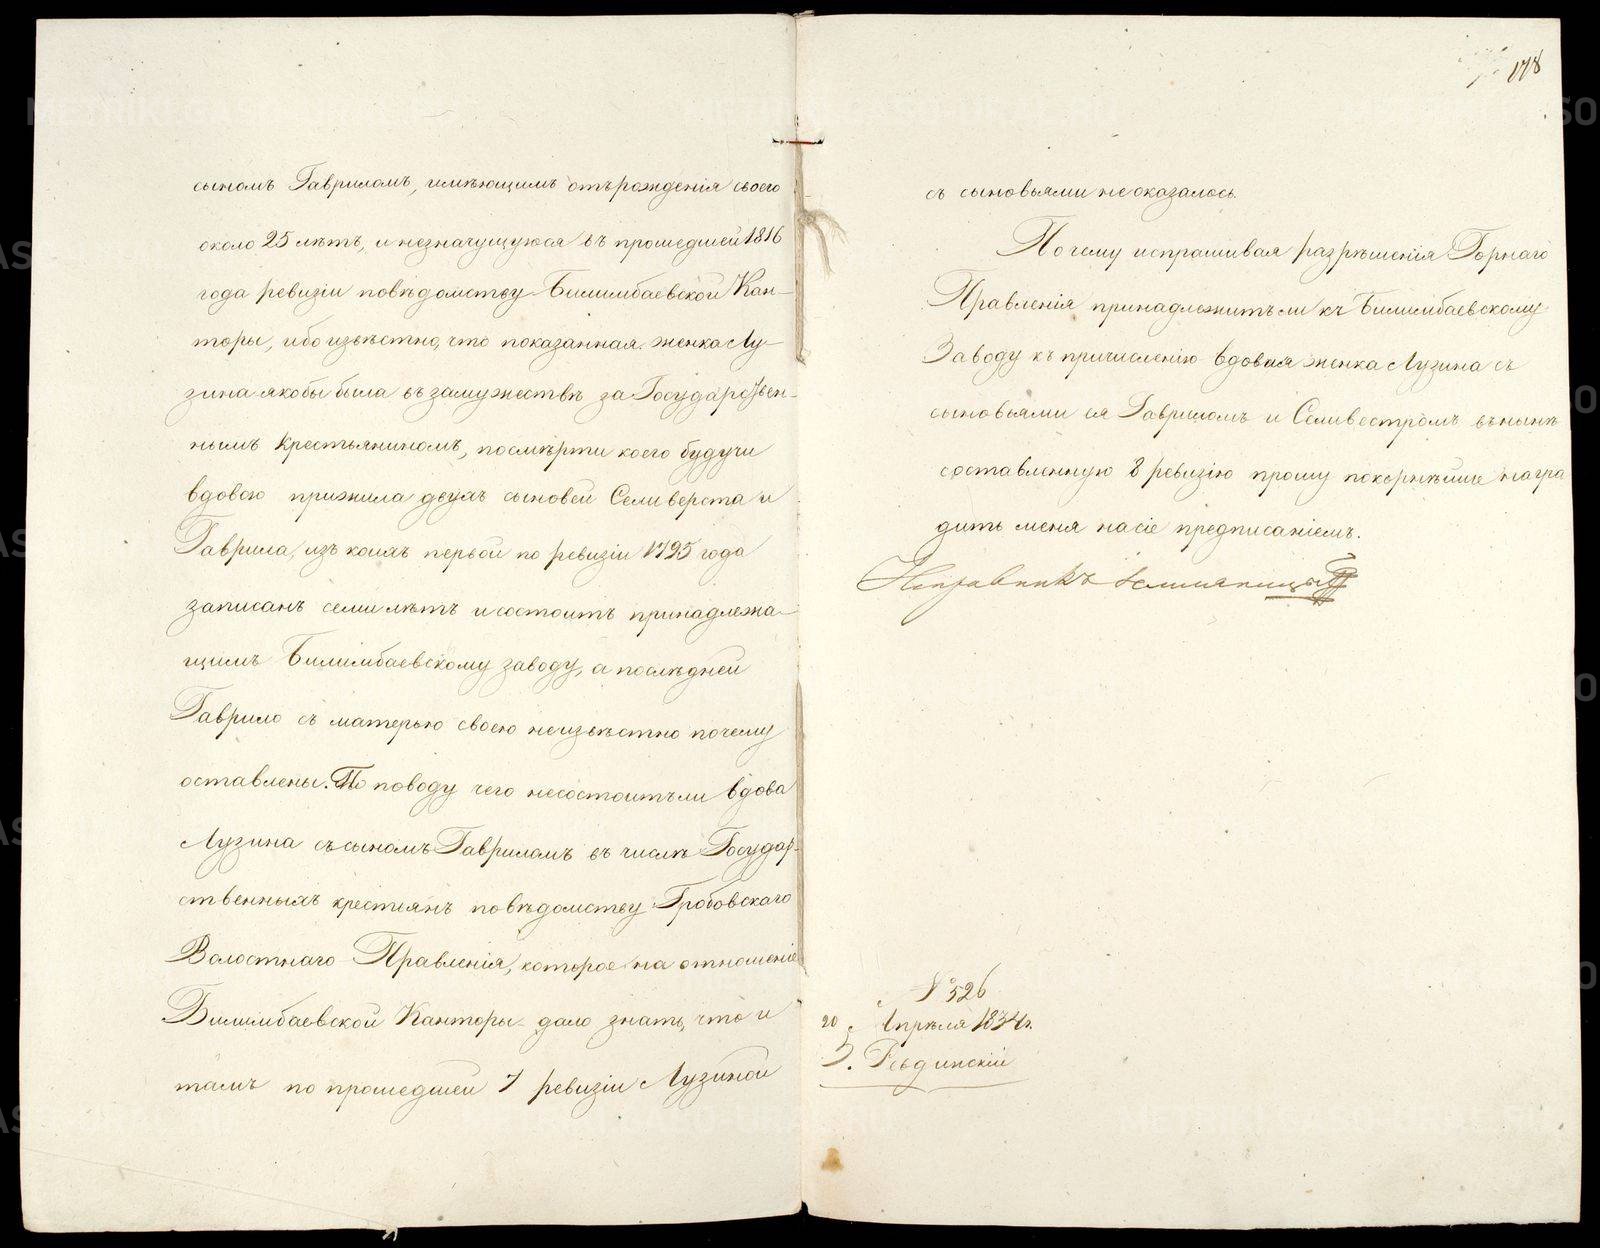 сыномъ Гавриломъ, имѣющимъ отърожденія своего
около 25 лѣтъ, и незначущуюся въ прошедшей 1816
года ревизіи повѣдомству Билимбаевской Кан-
торы, ибо извѣстно, что показанная женка Лу-
зина якобы была въ замужествѣ за Государствен-
нымъ крестьяниномъ, посмѣрти коего будучи
вдовою прижила двухъ сыновей Селиверста и
Гаврила, изъ коихъ первой по ревизіи 1795 года
записанъ семи лѣтъ и состоитъ принадлежа-
щимъ Билимбаевскому заводу, а послѣдней
Гаврило съ матерью своею неизвѣстно почему
оставлены. По поводу чего несостоитъ ли вдова
Лузина съ сыномъ Гавриломъ въ числѣ Государ-
ственныхъ крестьянъ повѣдомству Гробовскаго
Волостнаго Правленія, которое на отношеніе
Билимбаевской Канторы дало знать, что и
тамъ по прошедшей 7 ревизіи Лузиной
178
съ сыновьями не оказалось.
Почему испрашивая разрѣшенія Горнаго
Правленія принадлежитъ ли къ Билимбаевскому
Заводу къ причисленію вдовая женка Лузина съ
сыновьями ея Гавриломъ и Селивестромъ въ нынѣ
составленную 8 ревизію прошу покорнѣйше награ
дить меня на сіе предписаніемъ.
Исправникъ
№ 526
20 Апрѣля 1834 г.
З. Ревдинскій
METRIKI.GASO-URAL.RU